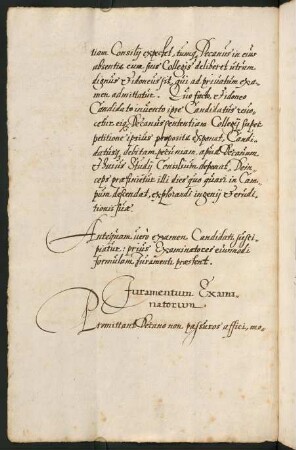 tiam Consilij expectet, tunq; Decanus in eius
absentia cum suis Collegis deliberet utrum
dignus et idoneus sit, qui ad priuatum exa
men admittatur. Quo facto, et idoneo
Candidato inuento ipse Candidatus
cetur, eiq; Decanus sententiam Collegij super
petitione ipsius proposita exponat, Candi
datusq; debitam pecuniam apud Decanum
et huius Studij Consilium deponat, Dein
ceps praefinietur illi dies quo quasi in Cam
pum descendat, explorandi ingenij et erudi
tionis suae.
Antequam uero examen Candidati susci
piatur: prius Examinatores eiusmodi
formulam Juramenti praestent.
Juramentum Exami
natorum
Permittant Decano non passuros affici, mo,